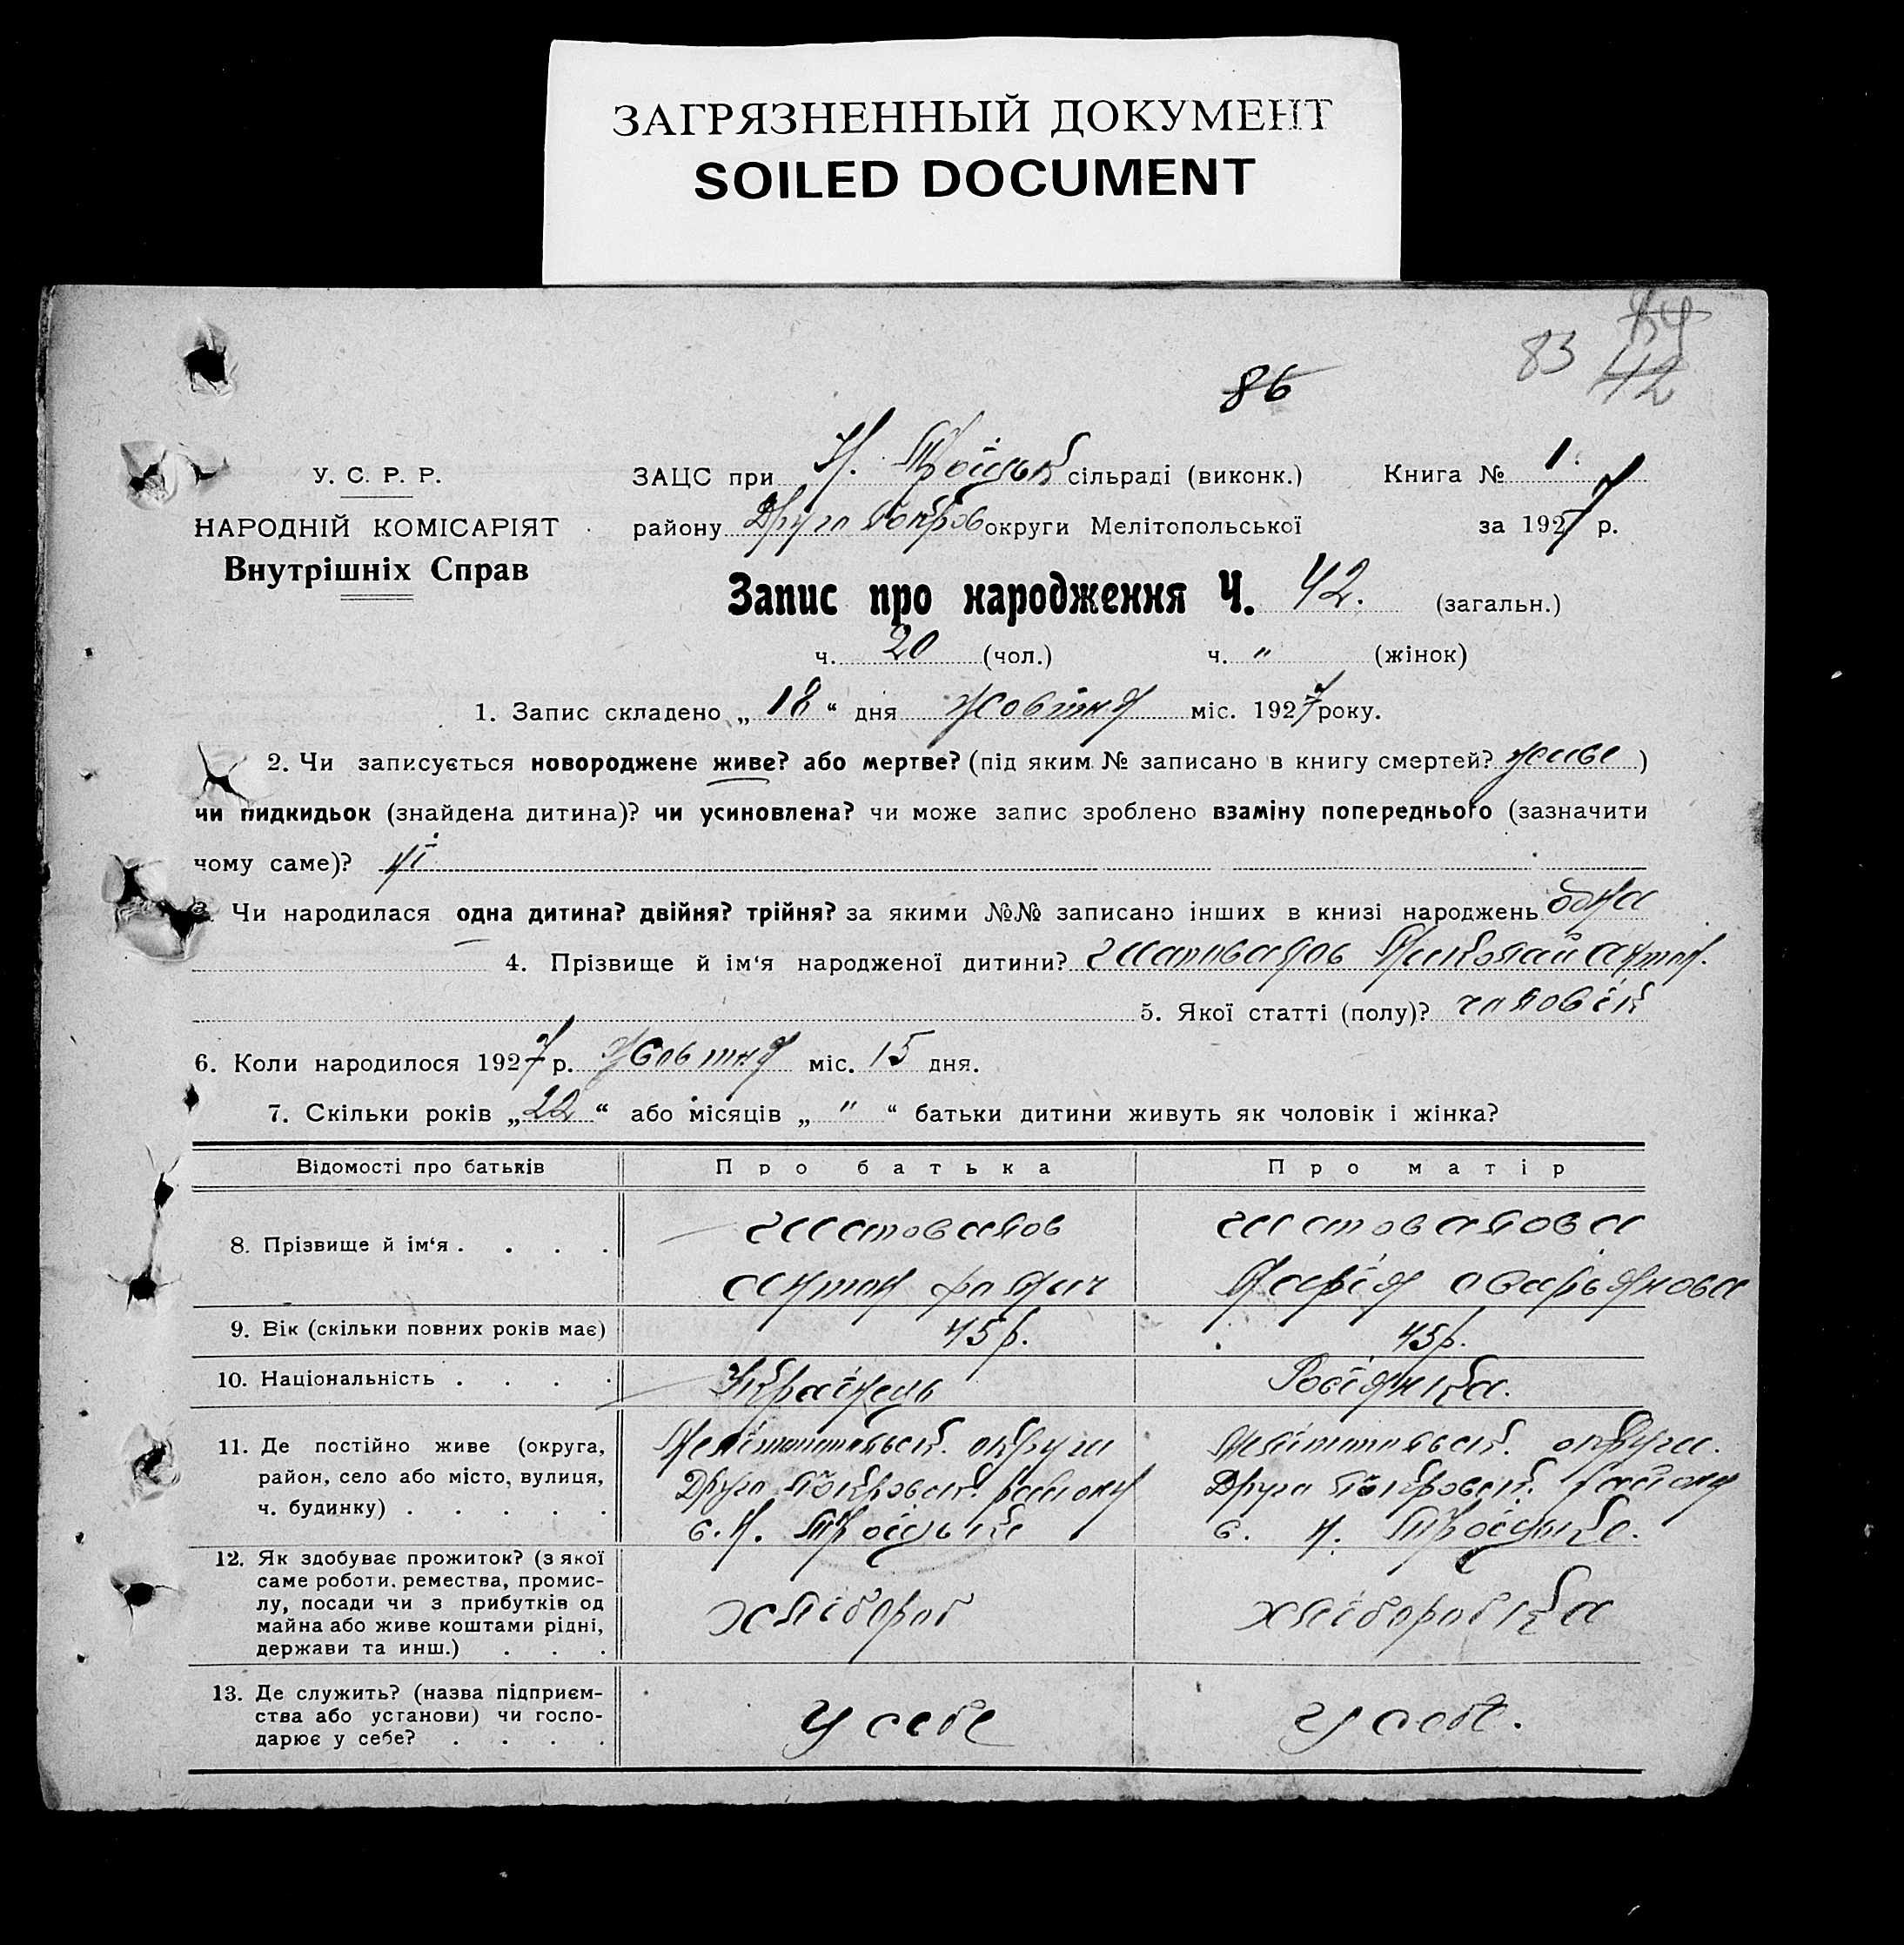 ЗАГРЯЗНЕННЫЙ ДОКУМЕНТ
SOILED DOCUMENT
83 42
86
У. С. Р. Р.
НАРОДНІЙ КОМІСАРІЯТ
Внутрішніх Справ
ЗАЦС при Н. Троїцьк сільраді (виконк.) Книга № 1.
району Друго Покров округи Мелітопольської за 1927 р.
Запис про народження Ч. 42. (загальн.)
ч. 20 (чол.) ч. " (жінок)
1. Запис складено „ 18 “ дня Жовтня міс. 1927 року.
2. Чи записується новороджене живе? або мертве? (під яким № записано в книгу смертей? живе )
чи пидкидьок (знайдена дитина)? чи усиновлена? чи може запис зроблено взаміну попереднього (зазначити
чому саме)? ні
3. Чи народилася одна дитина? двійня? трійня? за якими №№ записано інших в книзі народжень одна
4. Прізвище й ім‘я народженої дитини? Шаповалов Николай Антон.
5. Якої статті (полу)? чоловік
6. Коли народилося 1927 р. Жовтня міс. 15 дня.
7. Скільки років „ 22 “ або місяців „ " “ батьки дитини живуть як чоловік і жінка?
Відомості про батьків Про батька Про матір
8. Прізвище й ім‘я . . . . Шаповалов Шаповалова
Антон Марія
9. Вік (скільки повних років має) 45 р. 45 р.
10. Національність . . . . Українець Росіянка.
11. Де постійно живе (округа, Мелітопольськ. округи Мелітопольськ. округи.
район, село або місто, вулиця, Друго Покровськ. району Друго Покровськ. району
ч. будинку) . . . . . с. Н. Троїцьке с. Н. Троїцьке.
12. Як здобуває прожиток? (з якої
саме роботи, ремества, промис-
лу, посади чи з прибутків од хлібороб хліборобка
майна або живе коштами рідні,
держави та инш.) . . .
13. Де служить? (назва підприєм-
ства або установи) чи госпо- у себе у себе.
дарює у себе? . . . .